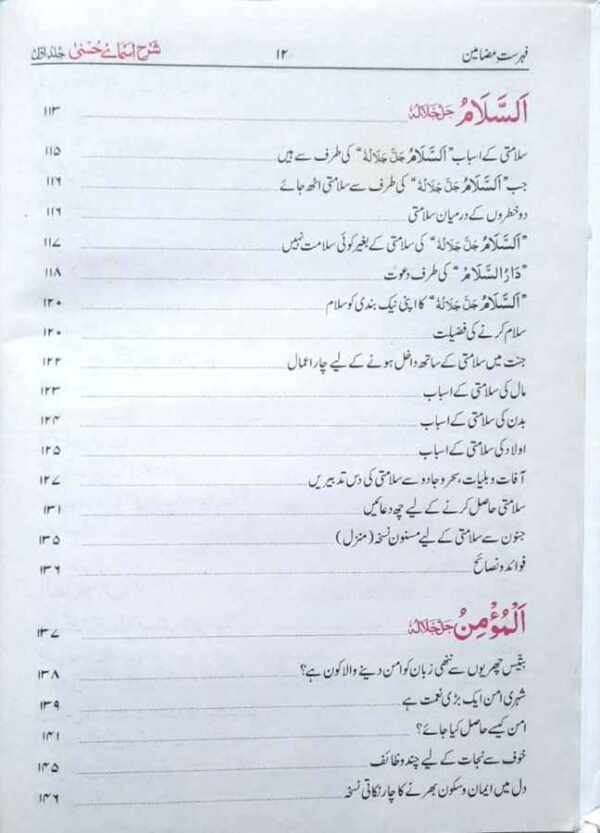 فہرست مضامین ۱۲ شرح اسمائے حسنیٰ جلد اوّل
اَلسَّلَامُ جَلَّ جَلَالُہٗ ۱۱۳
سلامتی کے اسباب ”اَلسَّلَامُ جَلَّ جَلَالُہٗ“ کی طرف سے ہیں ۱۱۵
جب ”اَلسَّلَامُ جَلَّ جَلَالُہٗ“ کی طرف سے سلامتی اٹھ جائے ۱۱۶
دو خطروں کے درمیان سلامتی ۱۱۶
”اَلسَّلَامُ جَلَّ جَلَالُہٗ“ کی سلامتی کے بغیر کوئی سلامت نہیں ۱۱۷
”دَارُ السَّلَامْ“ کی طرف دعوت ۱۱۸
”اَلسَّلَامُ جَلَّ جَلَالُہٗ“ کا اپنی نیک بندی کو سلام ۱۲۰
سلام کرنے کی فضیلت ۱۲۰
جنت میں سلامتی کے ساتھ داخل ہونے کے لیے چار اعمال ۱۲۲
مال کی سلامتی کے اسباب ۱۲۳
بدن کی سلامتی کے اسباب ۱۲۴
اولاد کی سلامتی کے اسباب ۱۲۵
آفات و بلیات، سحر و جادو سے سلامتی کی دس تدبیریں ۱۲۷
سلامتی حاصل کرنے کے لیے چھ دعائیں ۱۳۱
جنون سے سلامتی کے لیے مسنون نسخہ (منزل) ۱۳۵
فوائد و نصائح ۱۳۶
اَلْمُؤْمِنُ جَلَّ جَلَالُہٗ ۱۳۷
بتیس چھریوں سے ننھی زبان کو امن دینے والا کون ہے؟ ۱۳۸
شہری امن ایک بڑی نعمت ہے ۱۳۹
امن کیسے حاصل کیا جائے؟ ۱۴۱
خوف سے نجات کے لیے چند وظائف ۱۴۵
دل میں ایمان و سکون بھرنے کا چار نکاتی نسخہ ۱۴۶